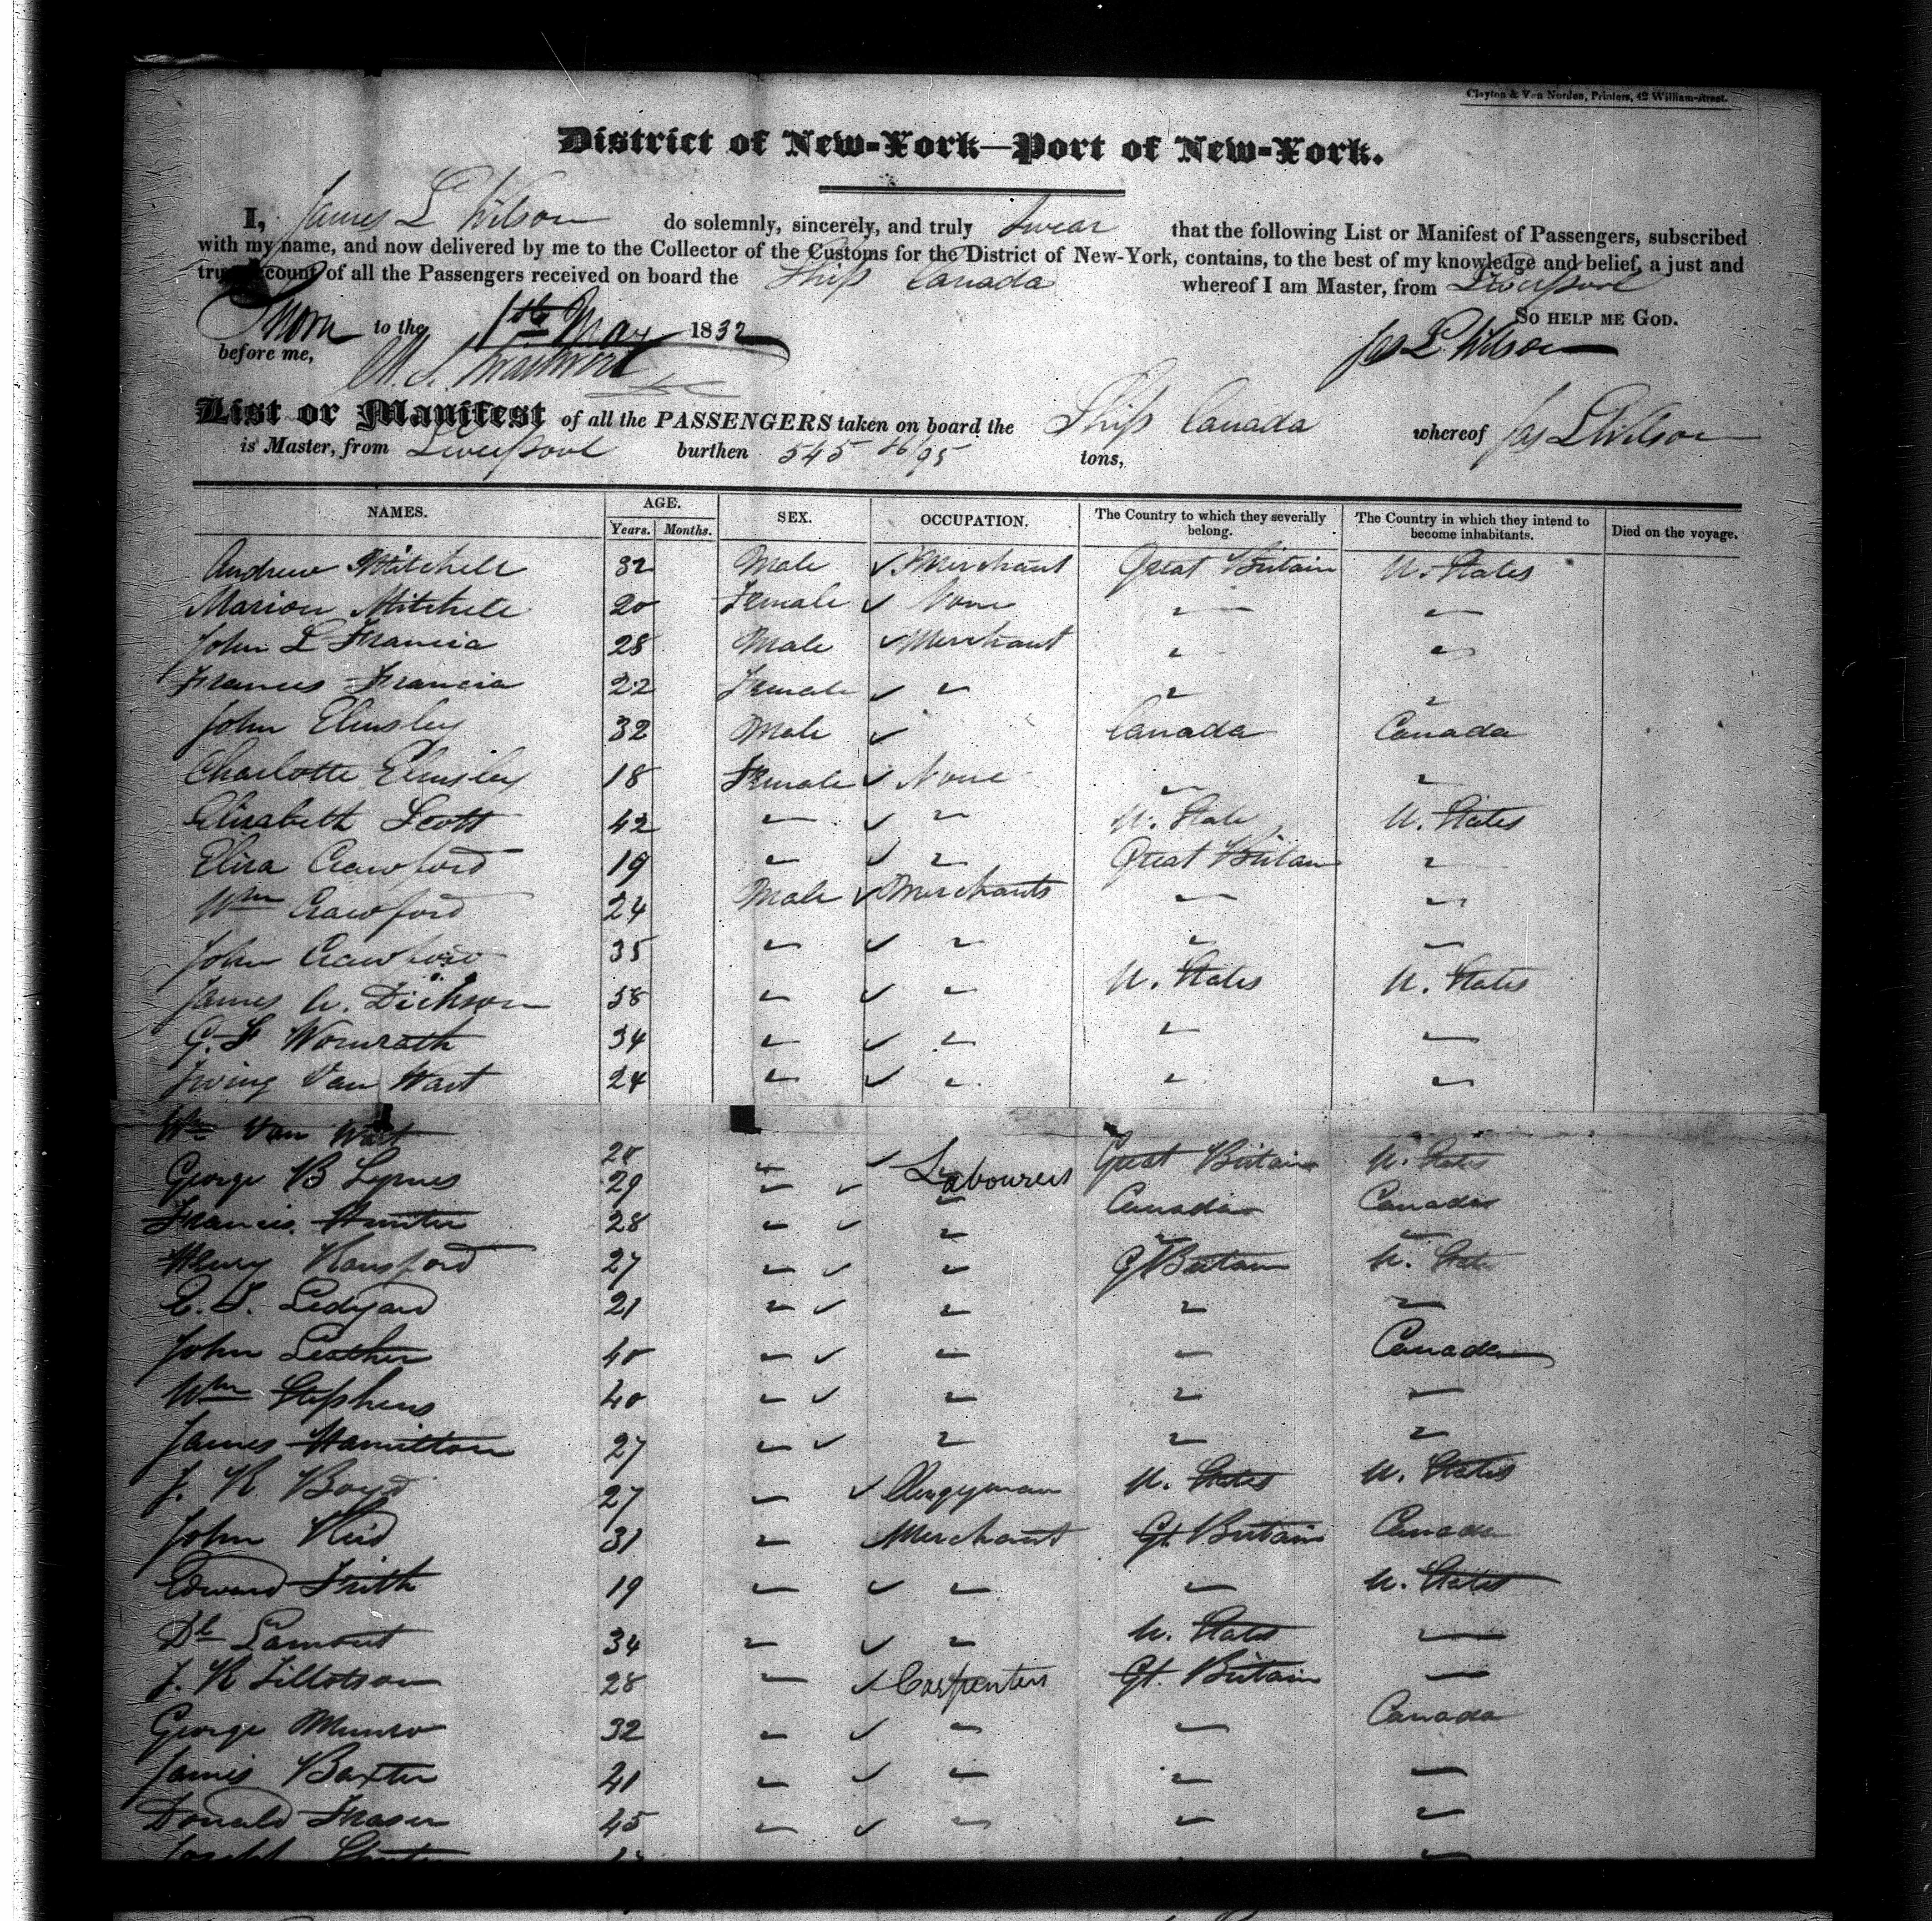 Clayton & Van Norden, Printers, 42 William-street.
District of New-York—Port of New-York.
I, James L Wilson do solemnly, sincerely, and truly Swear that the following List or Manifest of Passengers, subscribed
with my name, and now delivered by me to the Collector of the Customs for the District of New-York, contains, to the best of my knowledge and belief, a just and
true account of all the Passengers received on board the Ship Canada whereof I am Master, from Liverpool
Sworn to the 1th May 1832 So help me God.
before me, Jas L Wilson
List or Manifest of all the PASSENGERS taken on board the Ship Canada whereof Jas L Wilson
is Master, from Liverpool burthen 545 86/95 tons,
NAMES. AGE. SEX. OCCUPATION. The Country to which they severally belong. The Country in which they intend to become inhabitants. Died on the voyage.
Years. Months.
Andrew Mitchell 32 Male ✓ Merchant Great Britain U. States
Marion Mitchell 20 Female ✓ None " "
John L Francia 28 Male ✓ Merchant " "
Frances Francia 22 Female ✓ " " "
John Elmsley 32 Male ✓ Canada Canada
Charlotte Elmsley 18 Female ✓ None " "
Elizabeth Scott 42 " ✓ " U. State U. States
Eliza Crawford 19 " ✓ " Great Britain "
Wm Crawford 24 Male ✓ Merchants " "
John Crawford 35 " ✓ " " "
James W. Dickson 58 " ✓ " U. States U. States
G. F Wornrath 34 " ✓ " " "
Irving Van Wart 24 " ✓ " " "
Wm Van Wart 20 " ✓ Labourers Great Britain U. States
George B Symes 29 " ✓ " Canada Canada
Francis Hunter 28 " ✓ " " "
Henry Ransford 27 " ✓ " G Britain U. States
E. S. Ledyard 21 " ✓ " " "
John Leather 40 " ✓ " " Canada
Wm Stephens 40 " ✓ " " "
James Hamilton 27 " ✓ " " "
J. R Boyd 27 " ✓ Clergyman U. States U. States
John Reid 31 " ✓ Merchant Gt Britain Canada
Edward Frith 19 " ✓ " " U. States
Dl Lamont 34 " ✓ " U. States "
J. R Tillotson 28 " ✓ Carpenters Gt. Britain "
George Munro 32 " ✓ " " Canada
James Baxter 41 " ✓ " " "
Donald Fraser 45 " ✓ " " "
Joseph